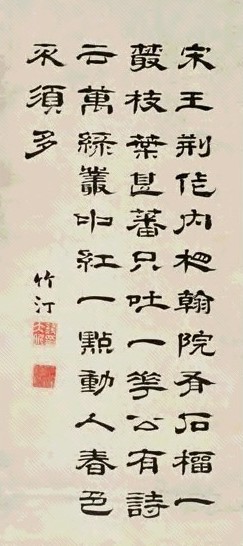 宋王荆作内相翰院有石榴一
叢枝葉甚蕃只吐一華公有詩
云萬綠叢中紅一點動人春色
不須多
竹汀